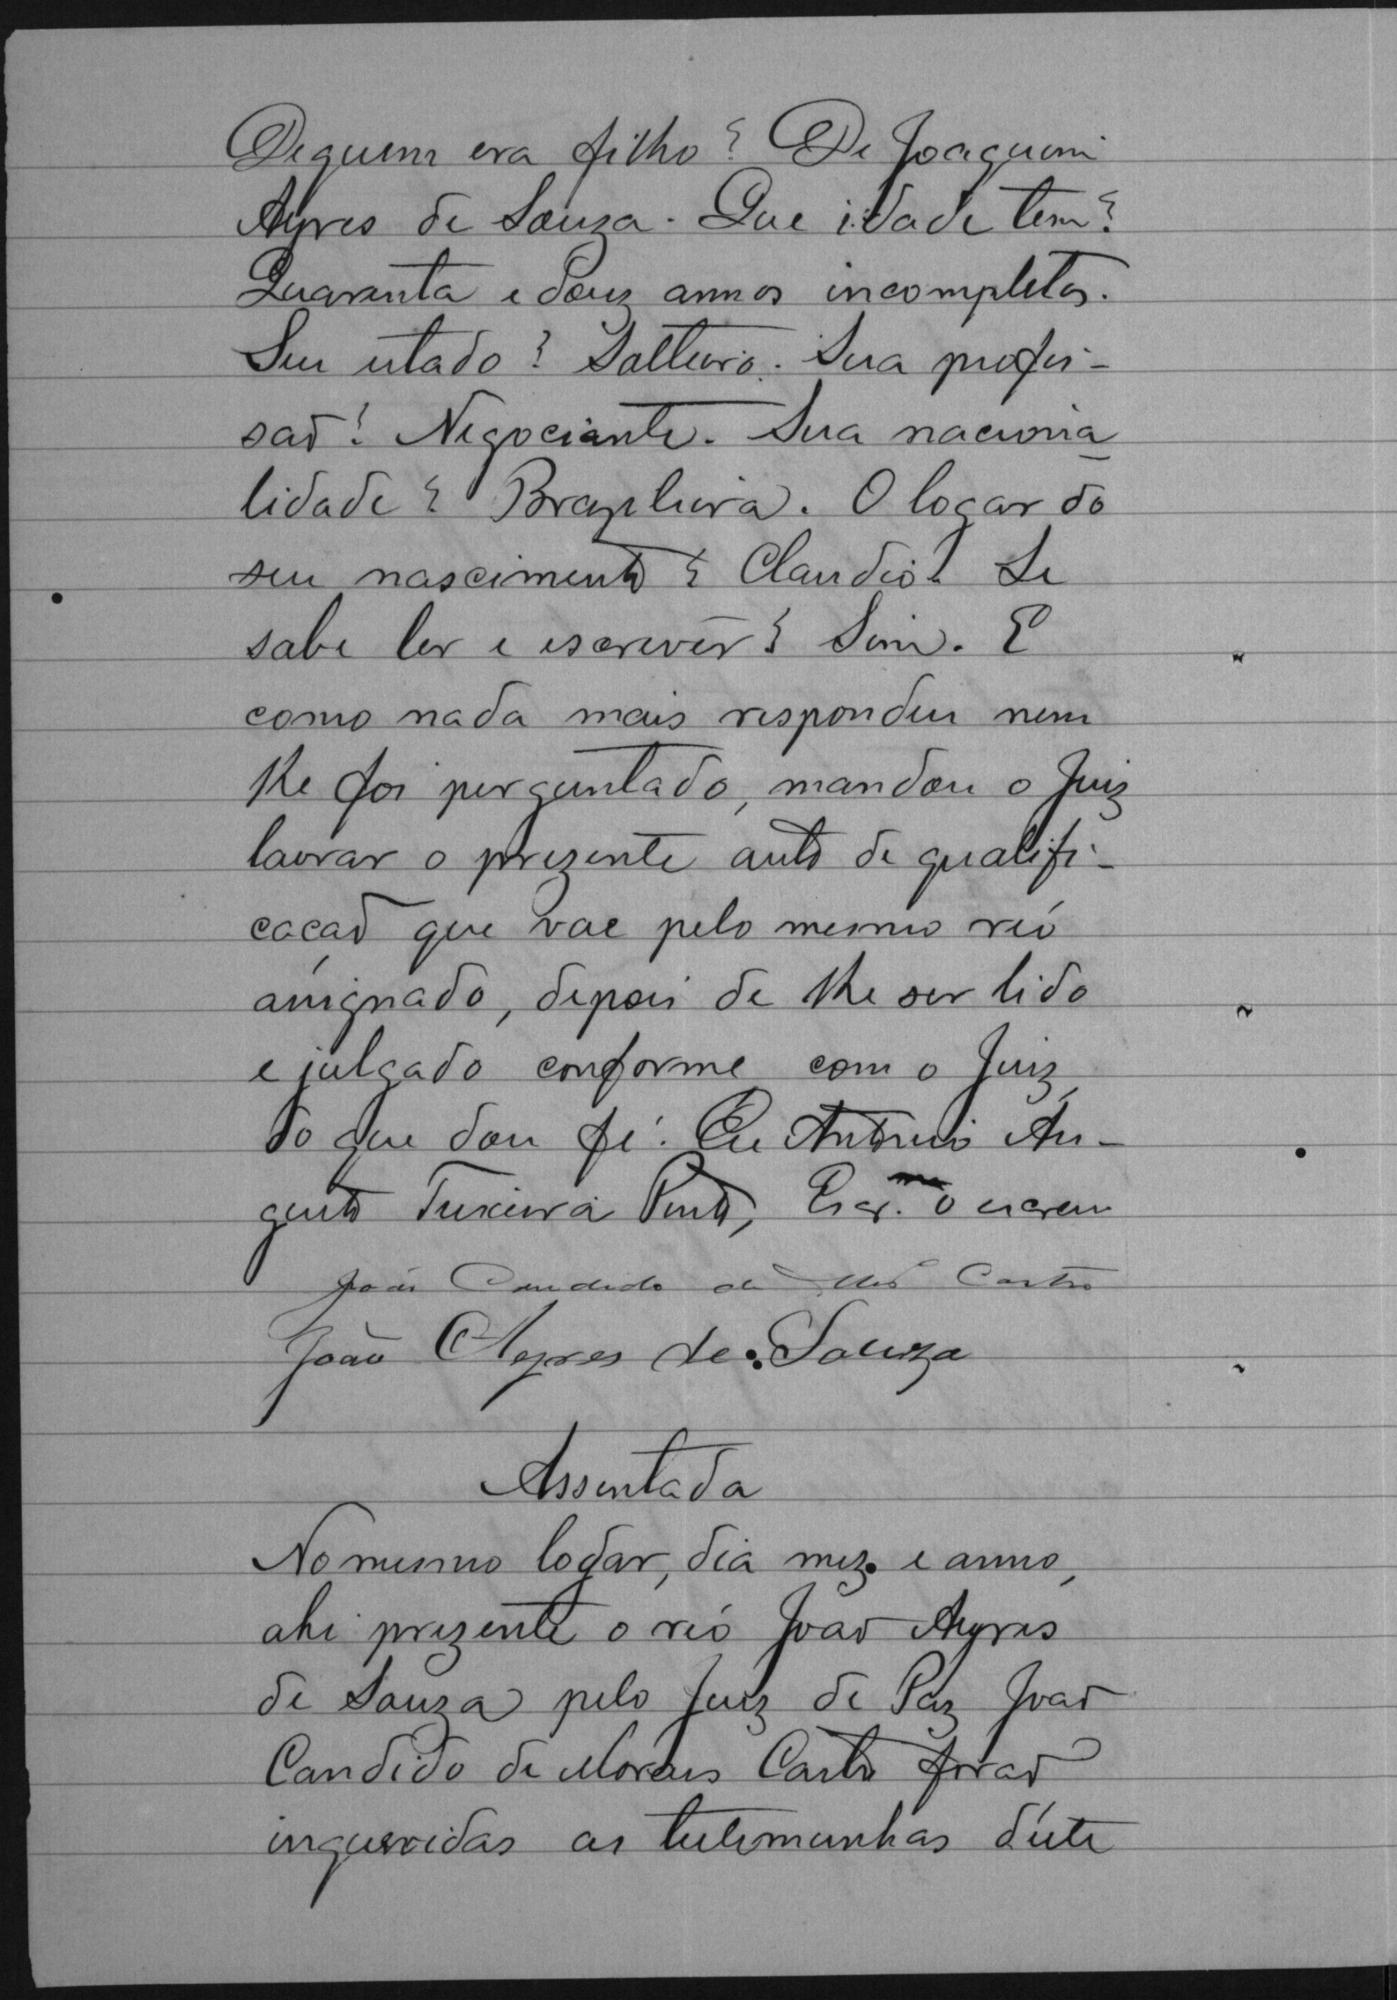 De quem era filho? De Joaquim
Ayres de Souza. Que idade tem?
Quarenta e douz annos incompletos.
Seu estado? Solteiro. Sua profis-
saõ? Negociante. Sua naciona
lidade? Brazileira. O logar do
seu nascimento? Claudio. Se
sabe ler e escrever? Sim. E
como nada mais respondeu nem
lhe foi perguntado, mandou o Juiz
lavrar o prezente auto de qualifi-
caçaõ que vae pelo mesmo réo
assignado, depois de lhe ser lido
e julgado conforme com o Juiz,
do que dou fé. Eu Antonio Au-
gusto Teixeira Pinto, Escr. o escrevi
João Candido de Mes Castro
João Ayres de Souza
Assentada
No mesmo logar, dia mez e anno,
ahi prezente o réo Joaõ Ayres
de Souza pelo Juiz de Paz Joaõ
Candido de Moraes Castro foraõ
inqueridas as testemunhas d'éste